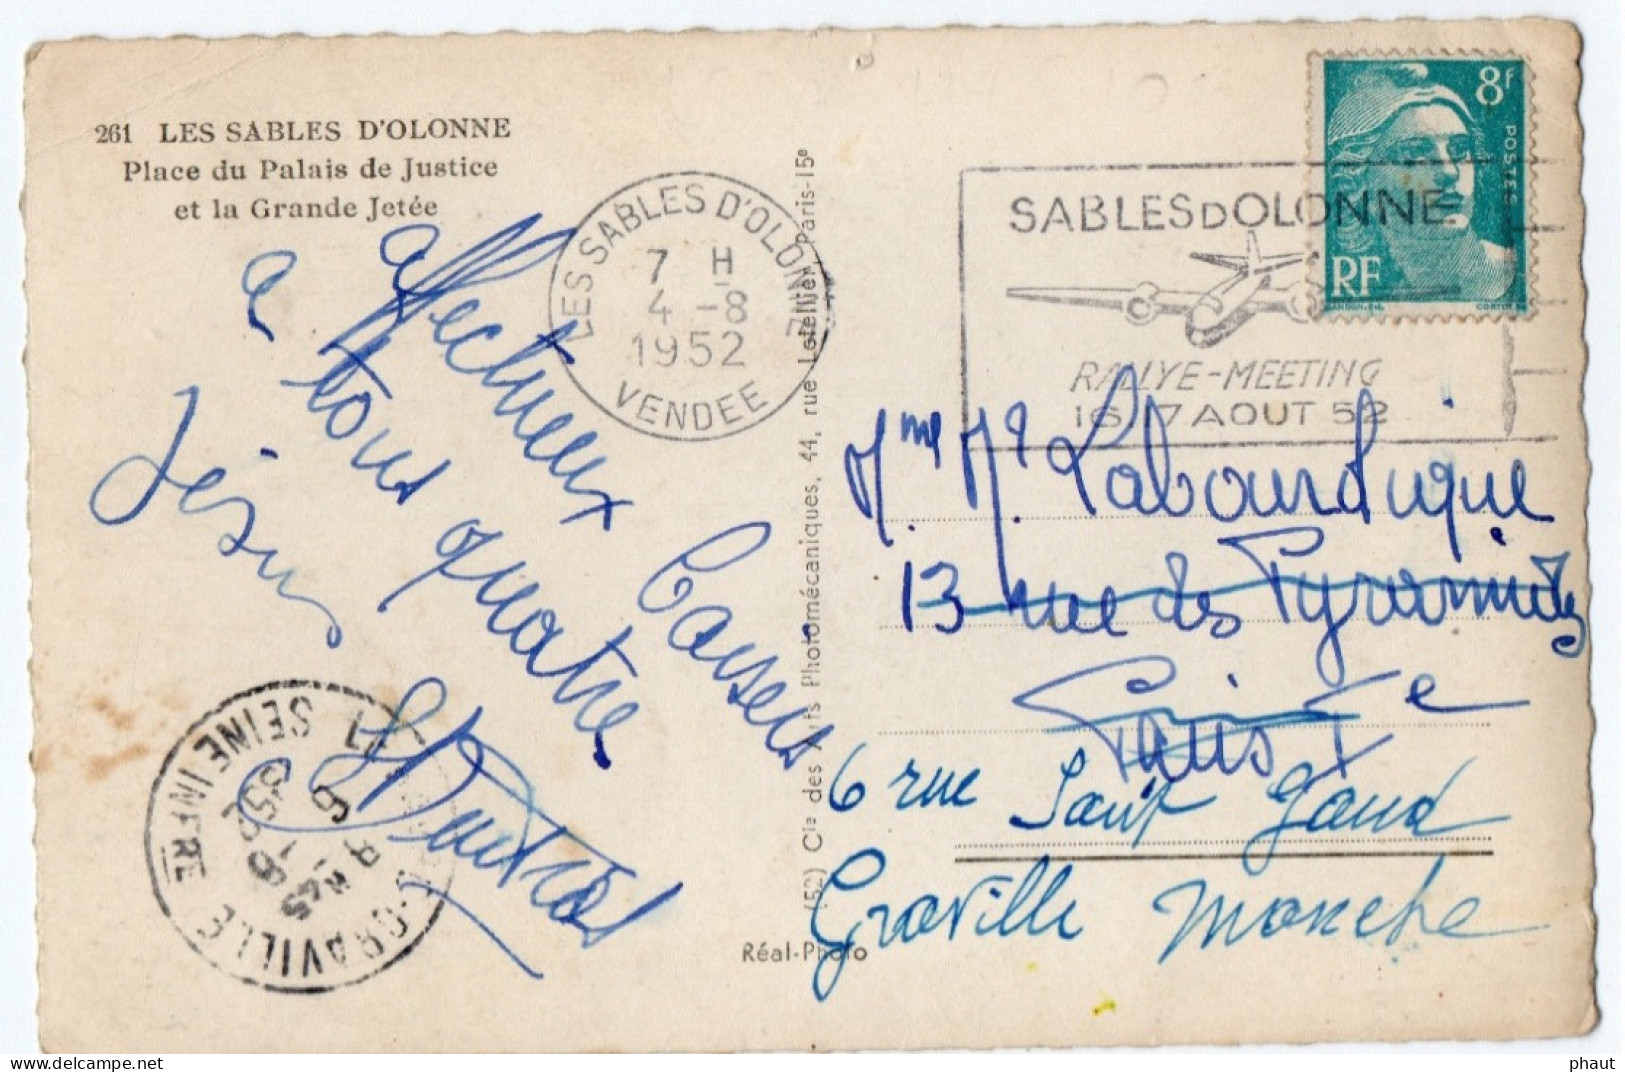 261 LES SABLES D'OLONNE
Place du Palais de Justice
et la Grande Jetée
LES SABLES D'OLONNE
7 H
4 -8
1952
VENDEE
SABLES D OLONNE
RALLYE-MEETING
16 17 AOUT 52
8f
POSTES
RF
affectueux baisers
a tous quatre
Jésus
Mme Labourdique
13 rue des Pyramides
Paris 1e
6 rue Saint Gaud
Granville Manche
GRAVILLE
SEINE INFRE
(52) Cie des Arts Photomécaniques, 44, rue Letellier, Paris-15e
Réal-Photo
phaut